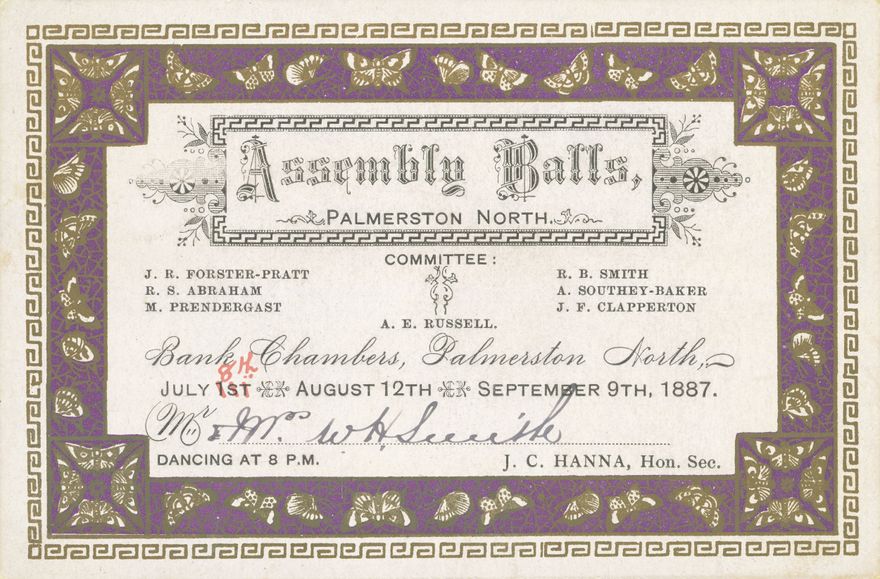 Assembly Balls,
PALMERSTON NORTH.
COMMITTEE:
J. R. FORSTER-PRATT
R. S. ABRAHAM
M. PRENDERGAST
R. B. SMITH
A. SOUTHEY-BAKER
J. F. CLAPPERTON
A. E. RUSSELL.
Bank Chambers, Palmerston North,
8th
JULY 1ST AUGUST 12TH SEPTEMBER 9TH, 1887.
Mr. & Mrs W H Smith
DANCING AT 8 P.M.
J. C. HANNA, Hon. Sec.